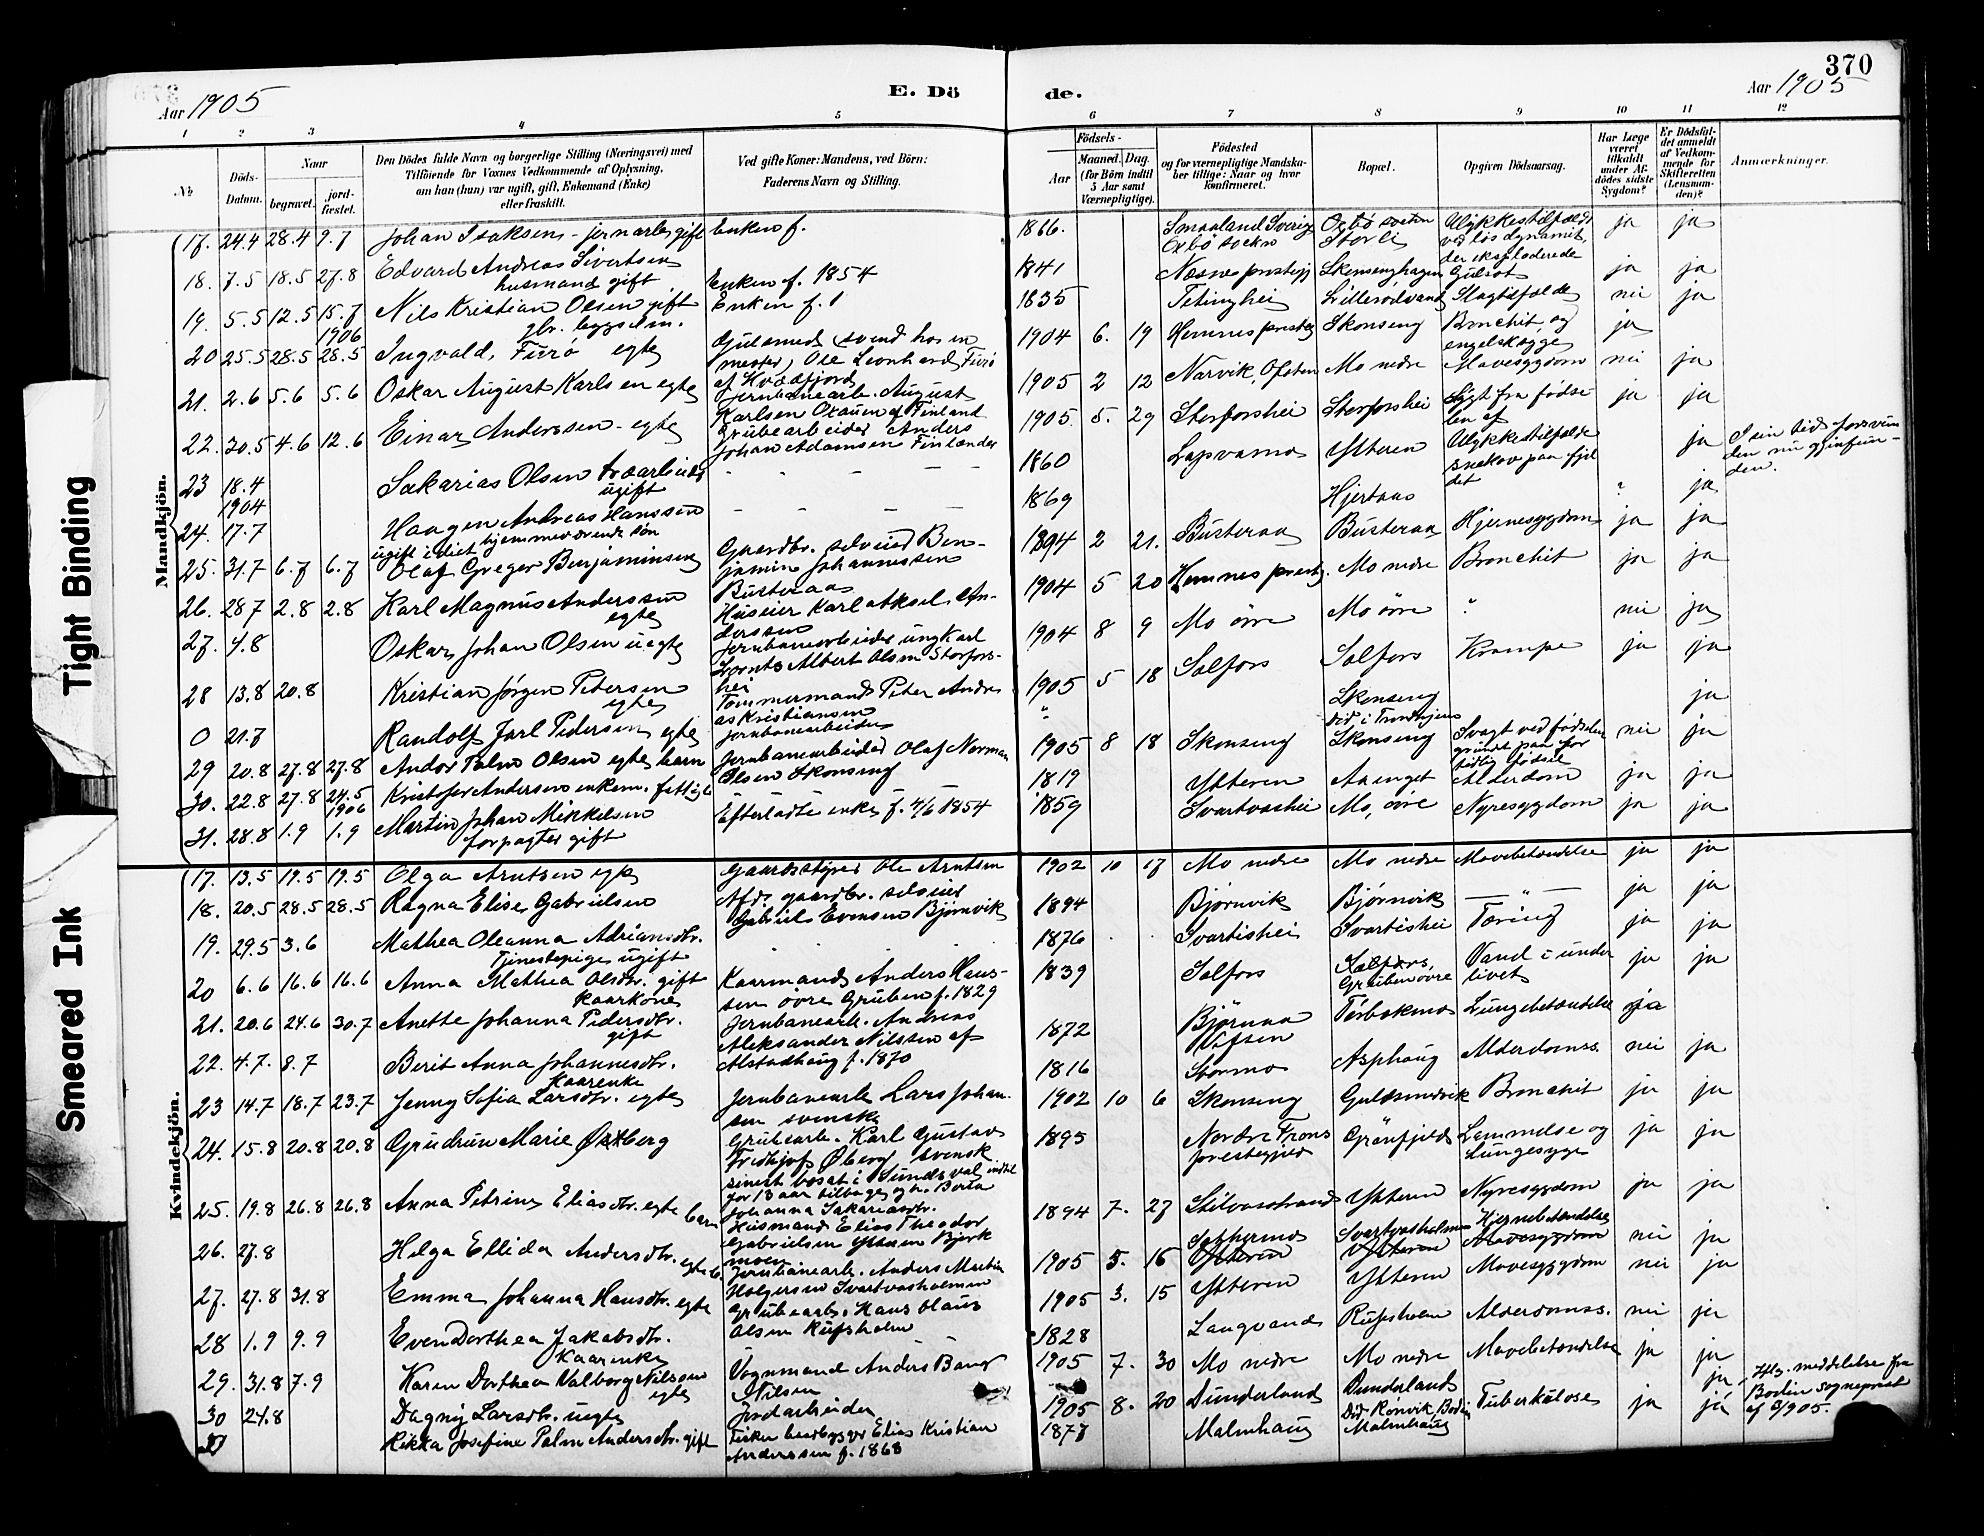 370
Aar 1905
E. Dö
de.
Aar 1905
1 2 3 4 5 6 7 8 9 10 11 12
№
Döds-
Datum.
Naar
begravet.
jord-
fæstet.
Den Dödes fulde Navn og borgerlige Stilling (Næringsvei) med
Tilföiende for Voxnes Vedkommende af Oplysning,
om han (hun) var ugift, gift, Enkemand (Enke)
eller fraskilt.
Ved gifte Koner: Mandens, ved Börn:
Faderens Navn og Stilling.
Födsels-
Aar
Maaned. Dag.
(for Börn indtil
5 Aar samt
Værnepligtige).
Födested
og for værnepligtige Mandska-
ber tillige: Naar og hvor
konfirmeret.
Bopæl.
Opgiven Dödsaarsag.
Har Læge
været
tilkaldt
under Af-
dödes sidste
Sygdom?
Er Dödsfal-
det anmeldt
af Vedkom-
mende for
Skifteretten
(Lensman-
den)?
Anmærkninger.
Mandkjön.
17. 24.4 28.4 9.7 Johan Isaksen - jernarb. gift Enken f. 1866. Smaaland Sverig Storli Ulykkestilfælde ja ja
ved løs dynamit,
der eksploderede
18. 7.5 18.5 27.8 Edvard Andreas Sivertsen
husmand gift Enken f. 1854 1841 Næsne prestegj Skonsenghagen Gulsot ja ja
19. 5.5 12.5 15.7 Nils Kristian Olsen gift Enken f. 1835 Lillerødvand Slagtilfælde nei ja
1906
20 25.5 28.5 28.5 Ingvald Furö egte Gulsmed svend hos en
mester, Ole Leonhard Furö
af Kvædfjord 1904 6. 19 Hemnes presteg Skonseng Bronchit og
engelsksyge ja
21. 2.6 5.6 5.6 Oskar August Karlsen egte Jernbanearb. August
Karlsen af Finland 1905 2 12 Narvik, Ofoten Mo nedre Mavesygdom nei ja
22. 30.5 4.6 12.6 Einar Anderssen - egte Grubearbeider Anders
Johan Adamsen Finlænder 1905. 5. 29 Storforshei Storforshei Sygt fra fødse
len af ja ja
23 18.4
1904 Sakarias Olsen
ugift 1860 Lapvamo Ytteren Ulykkestilfælde
paa fjel
det ja I sin tid forsvun
den nu gjenfun-
den.
24. 17.7 Haagen Andreas Hanssen
ugift hjemmeværende søn 1869 Hjertaas ? ja
25. 31.7 6.7 6.7 Olaf Greger Benjaminsen Gaardbr. selveier Ben-
jamin Johannessen
Busteraa 1894 2 21. Busteraa Busteraa Hjernesygdom ja ja
26. 28.7 2.8 2.8 Karl Magnus Anderssen
egte Huseier Karl Aksel An-
derssen 1904 5 20 Hemnes presteg. Mo nedre Bronchit ja ja
27. 4.8 Oskar Johan Olsen uegte Jernbanearbeider ungkarl
Lorents Albert Olsen Storfors-
hei 1904 8 9 Mo övre Mo övre " nei ja
28 13.8 20.8 Kristian Jørgen Petersen
egte Tømmermand Peter Andre
as Kristiansen 1905 5 18 Salfors Salfors Krampe ja ja
0 21.7 Randolf Jarl Pedersen egte Jernbanearbeider " Skonseng
død i Trondhjem ja
29 20.8 27.8 27.8 Andor Palm Olsen egte barn Jernbanearbeider Olaf Norman
Olsen Skonseng 1905 8 18 Skonseng Skonseng Svagt ved fødselen
grundet paa for
tidlig fødsel nei ja
30. 22.8 27.8 24.5
1906 Kristofer Anderssen enkem. fattig 1819 Ytteren Aanget Alderdom ja ja
31. 28.8 1.9 1.9 Martin Johan Mikkelsen
forpagter gift Efterladte enke f. 4/6 1854 1859 Svartvashei Mo, övre Nyresygdom ja ja
Kvindekjön.
17. 13.5 19.5 19.5 Olga Arntsen egte Gaardstyrer Ole Arntsen 1902 10 17 Mo nedre Mo nedre Mavebetændelse ja ja
18. 20.5 28.5 28.5 Ragna Elise Gabrielsen Afd. gaardbr. selveier
Gabriel Evensen Bjørnvik 1894 Bjørnvik Bjørnvik — " — ja ja
19. 29.5 3.6 Mathea Oleanna Adriansdtr.
Tjenestepige ugift 1876 Svartishei Svartishei Tæring ja ja
20 6.6 16.6 16.6 Anna Mathea Olsdtr. gift
Kaarkone Kaarmand Anders Hans-
sen övre Gruben f. 1829 1839 Salfors Gruben övre Vand i under
livet ja ja
21. 20.6 24.6 30.7 Anette Johanna Pedersdtr.
gift Jernbanearb. Andreas
Aleksander Nilssen af
Alstadhaug f. 1870 1872 Björnaa
Vefsen Lungebetændelse ja
22. 4.7. 8.7 Berit Anna Johannesdtr.
Kaarenke 1816 Stormo Asphaug Alderdomss. nei ja
23 14.7 18.7 23.7 Jenny Sofia Larsdtr. egte Jernbanearb Lars Johan-
sen svenske 1902 10 6 Skonseng Guldsmedvik Bronchit ja ja
24. 15.8 20.8 20.8 Gudrun Marie Øberg Grubearb. Karl Gustav
Fridthjof Øberg svensk
sinest bosat i Sundsval indtil
for 13 aar tilbage og h. Berta
Johanna Sakariasdtr. 1895 Nordre Frons
prestegjeld Grönfjeld Lammelse og
Lungesyge ja ja
25. 19.8 26.8 26.8 Anna Petrine Eliasdtr. egte barn Husmand Elias Theodor
Gabrielsen Ytteren Bjerk
moen 1894 7. 27 Stilvasstrand Ytteren Nyresygdom ja ja
26. 27.8 Helga Ellida Andersdtr. egte b. Jernbanearb. Anders Martin
Holgersen Svartvasholmen 1905 5. 16 Ytteren Svartvasholmen
Ytteren Hjernebetændelse
Mavesygdom nei ja
27. 27.8 31.8 Emma Johanna Hansdtr. egte Grubearb. Hans Olaus
Olsen Rufsholm 1905 3. 15 Ytteren Ytteren Mavesygdom nei ja
28 1.9 9.9 Even Dorthea Jakobsdtr.
Kaarenke 1828 Langvand Rufsholm Alderdomss. nei ja
29. 31.8 7.9 Karen Dorthea Valborg Nilsen
egte Vognmand Anders Baug
Nilsen 1905 7. 30 Mo nedre Mo nedre Mavebetændelse ja ja
30 24.8 Dagny Larsdtr. uegte Jordarbeider 1905 8. 20 Dunderland Dunderland ja
Død Rønvik Bodin
Rikka Josefine Palm Andersdtr. gift Fisker Elias Kristian
Anderssen f. 1868 1877 Malmhaug Malmhaug Tuberkulose ja ja Iflg. meddelelse fra
Bodin Sogneprest
af 5/905.
Tight Binding
Smeared Ink